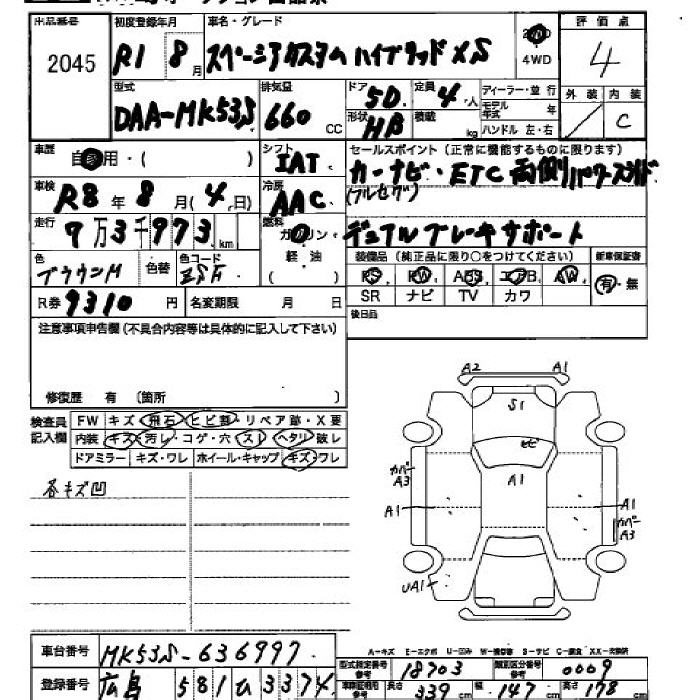 出品番号 初度登録年月 車名・グレード 評価点
2045 R1 8月 スペーシアカスタムハイブリッドXS 2WD 4WD 4
型式 排気量 ドア 定員 ディーラー・並行 外装 内装
DAA-MK53S 660 CC 5D 4人 モデル年式 年 C
形状 HB 積載 kg ハンドル 左・右
車歴 自家用・( ) シフト IAT セールスポイント(正常に機能するものに限ります)
車検 R8年8月(4日) 冷房 AAC カーナビ・ETC 両側パワースライド
(フルセグ)
走行 9万3千973km 燃料 ガソリン・軽油( ) デュアルブレーキサポート
色 ブラウンM 色替 色コード 装備品(純正品に限り○をつけてください) 新車保証書
PS PW ABS エアB AW 有・無
R券 9310円 名変期限 月 日 SR ナビ TV カワ
注意事項申告欄(不具合内容等は具体的に記入して下さい) 後日品
修復歴 有(箇所 )
検査員記入欄 FW キズ・飛石・ヒビ割・リペア跡・X要
内装 キズ・汚レ・コゲ・穴・スレ・ヘタリ・破レ
ドアミラー キズ・ワレ ホイール・キャップ キズ・ワレ
各キズ凹
A2 A1
S1
ヒビ
カバー A3 A1
A1 A1
カバー A3
UA1
A-キズ E-エクボ U-凹み W-補修跡 S-サビ C-腐食 XX-交換済
車台番号 MK53S-636997 型式指定番号 参考 18703 類別区分番号 参考 0009
登録番号 広島 581 ひ 3374 車検証明用参考 長さ 339cm 幅 147cm 高さ 178cm